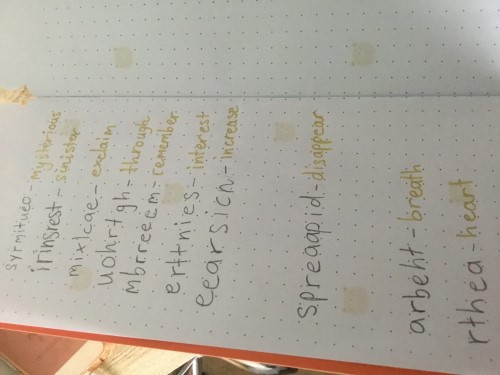 syrmitueo - mysterious
irinsrest - sinister
mixlcae - exclaim
uohrtgh - through
mbrreeem - remember
erttnies - interest
eearsicn - increase
spreaapid - disappear
arbeht - breath
rthea - heart